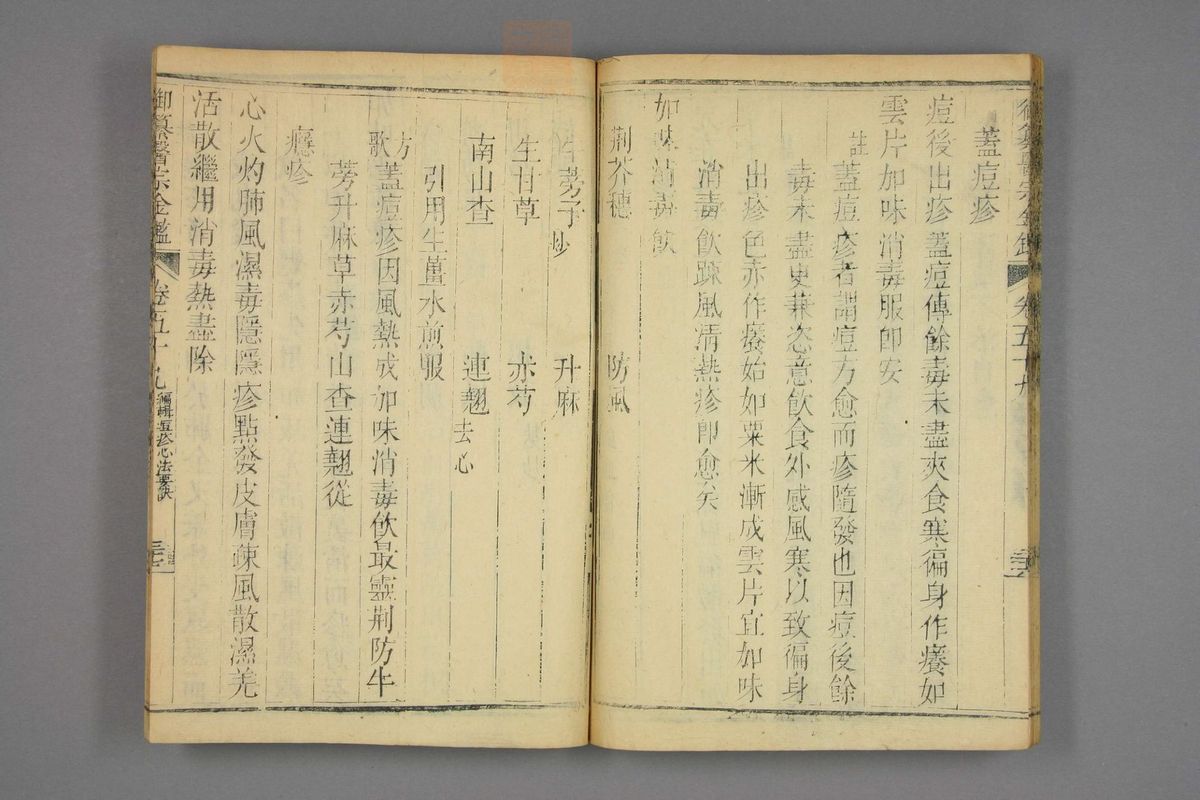 御纂醫宗金鑑 卷五十九
蓋痘疹
痘後出疹蓋痘傳餘毒未盡夾食寒徧身作癢如
雲片加味消毒服卽安
註
蓋痘疹者謂痘方愈而疹隨發也因痘後餘
毒未盡更兼恣意飲食外感風寒以致徧身
出疹色赤作癢始如粟米漸成雲片宜加味
消毒飲踈風清熱疹卽愈矣
加味消毒飲
荆芥穗 防風
牛蒡子炒 升麻
生甘草 赤芍
南山查 連翹去心
引用生薑水煎服
方歌
蓋痘疹因風熱成加味消毒飲最靈荆防牛
蒡升麻草赤芍山查連翹從
癮疹
心火灼肺風濕毒隱隱疹點發皮膚踈風散濕羌
活散繼用消毒熱盡除
御纂醫宗金鑑 卷五十九 編輯痘疹心法要訣